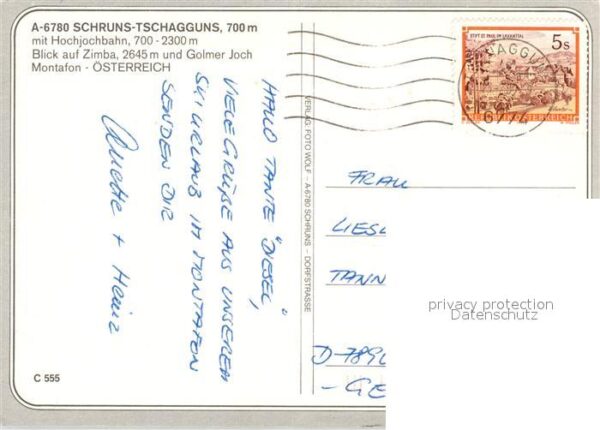 A-6780 SCHRUNS-TSCHAGGUNS, 700 m
mit Hochjochbahn, 700 - 2300 m
Blick auf Zimba, 2645 m und Golmer Joch
Montafon - ÖSTERREICH
HALLO TANTE "DIESEL",
VIELE GRÜßE AUS UNSEREM
SKIURLAUB IM MONTAFON
SENDEN DIR
+ Heinz
VERLAG FOTO WOLF - A-6780 SCHRUNS - DORFSTRASSE
STIFT ST. PAUL IM LAVANTTAL
5 S
FRAU
LIESL
TANN
D-789
-GE
privacy protection
Datenschutz
C 555